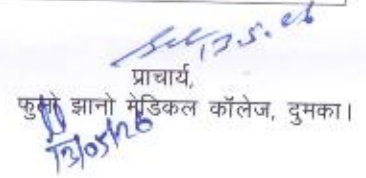 13.5.26
प्राचार्य,
फुलो झानो मेडिकल कॉलेज, दुमका।
13/05/26